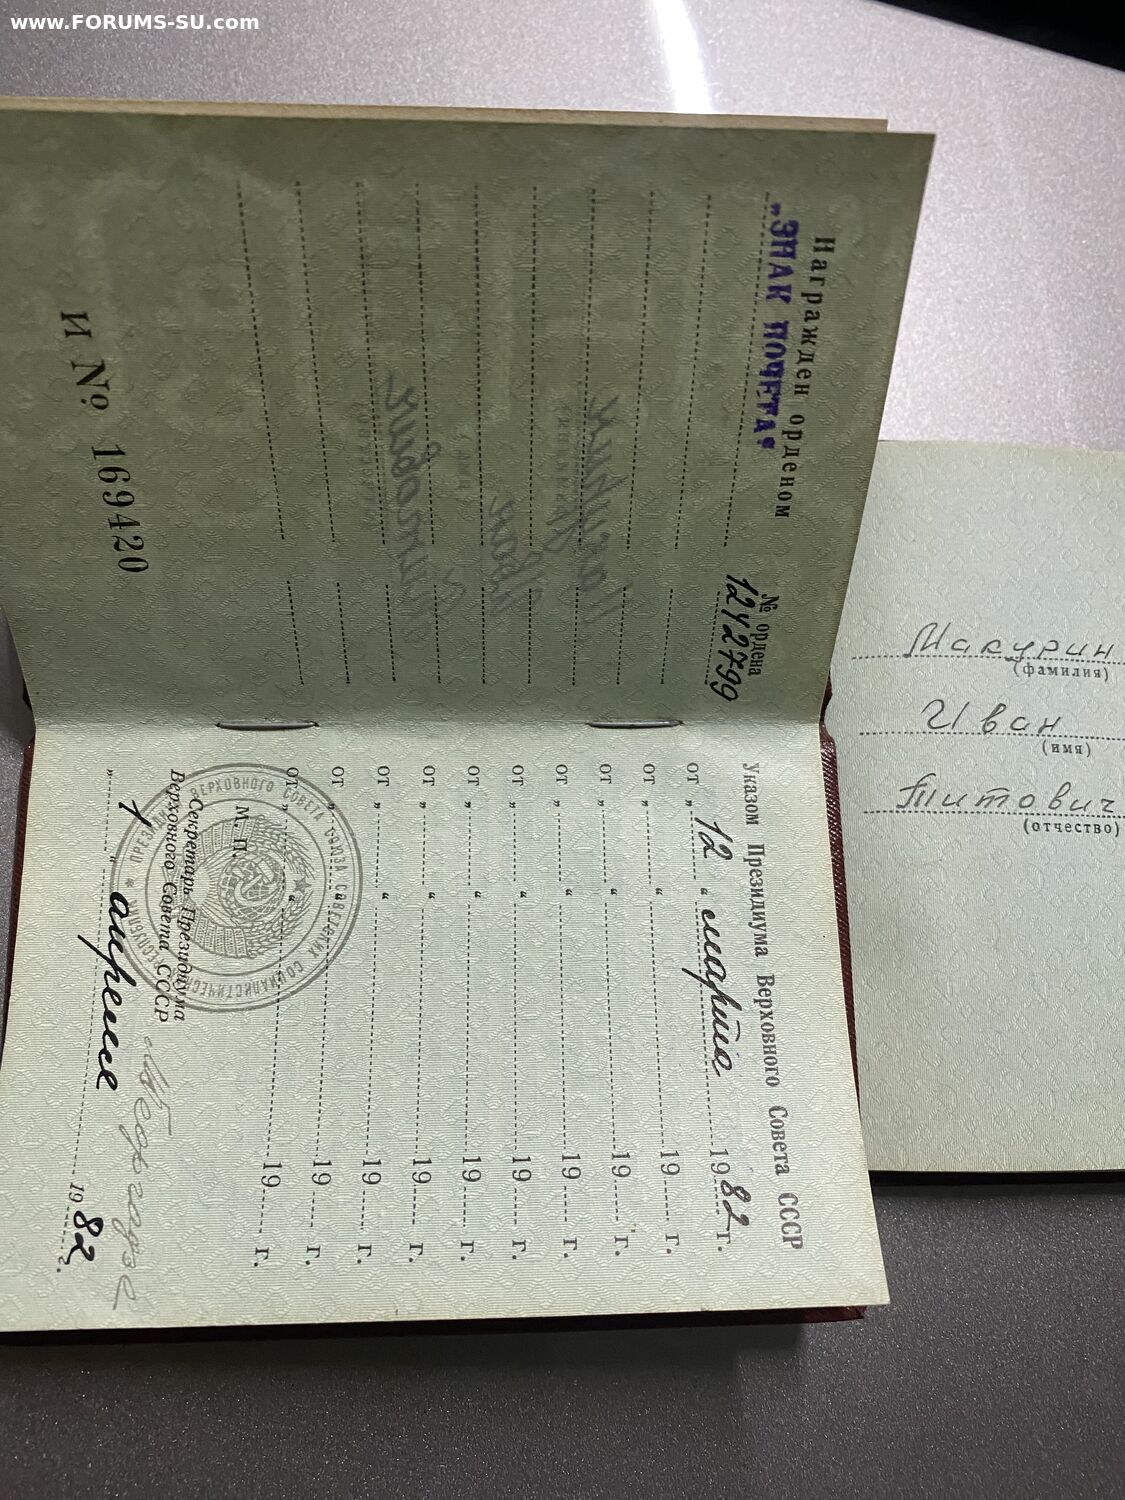 www.FORUMS-SU.com
Награжден орденом
„ЗНАК ПОЧЕТА“
№ ордена
1242799
И № 169420
Указом Президиума Верховного Совета СССР
от „ 12 “ марта 1982 г.
от „ “ 19 г.
от „ “ 19 г.
от „ “ 19 г.
от „ “ 19 г.
от „ “ 19 г.
от „ “ 19 г.
от „ “ 19 г.
от „ “ 19 г.
от „ “ 19 г.
М. П.
Секретарь Президиума
Верховного Совета СССР
„ 1 “ апреля 1982 г.
ПРЕЗИДИУМ ВЕРХОВНОГО СОВЕТА СОЮЗА СОВЕТСКИХ СОЦИАЛИСТИЧЕСКИХ РЕСПУБЛИК
Макурин
(фамилия)
Иван
(имя)
Титович
(отчество)